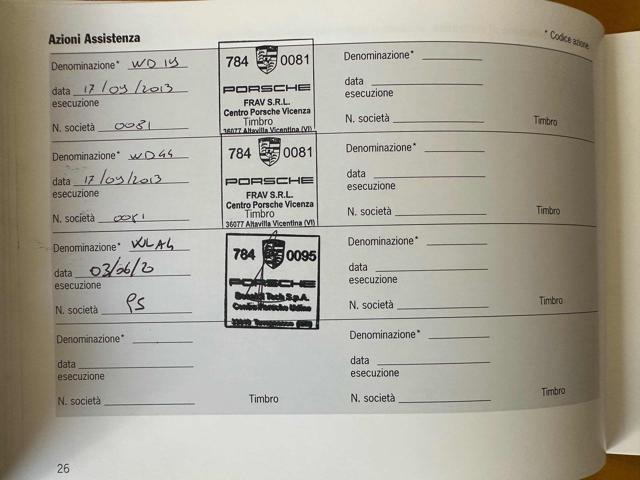 Azioni Assistenza
* Codice azione
Denominazione* WD 19
data 17/09/2013
esecuzione
N. società 0081
784 0081
PORSCHE
FRAV S.R.L.
Centro Porsche Vicenza
Timbro
36077 Altavilla Vicentina (VI)
Denominazione*
data
esecuzione
N. società
Timbro
Denominazione* WD44
data 17/09/2013
esecuzione
N. società 0081
784 0081
PORSCHE
FRAV S.R.L.
Centro Porsche Vicenza
Timbro
36077 Altavilla Vicentina (VI)
Denominazione*
data
esecuzione
N. società
Timbro
Denominazione* WLA4
data 03/06/20
esecuzione
N. società 95
784 0095
PORSCHE
Tech S.p.A.
Centro Porsche Udine
Denominazione*
data
esecuzione
N. società
Timbro
Denominazione*
data
esecuzione
N. società
Timbro
Denominazione*
data
esecuzione
N. società
Timbro
26